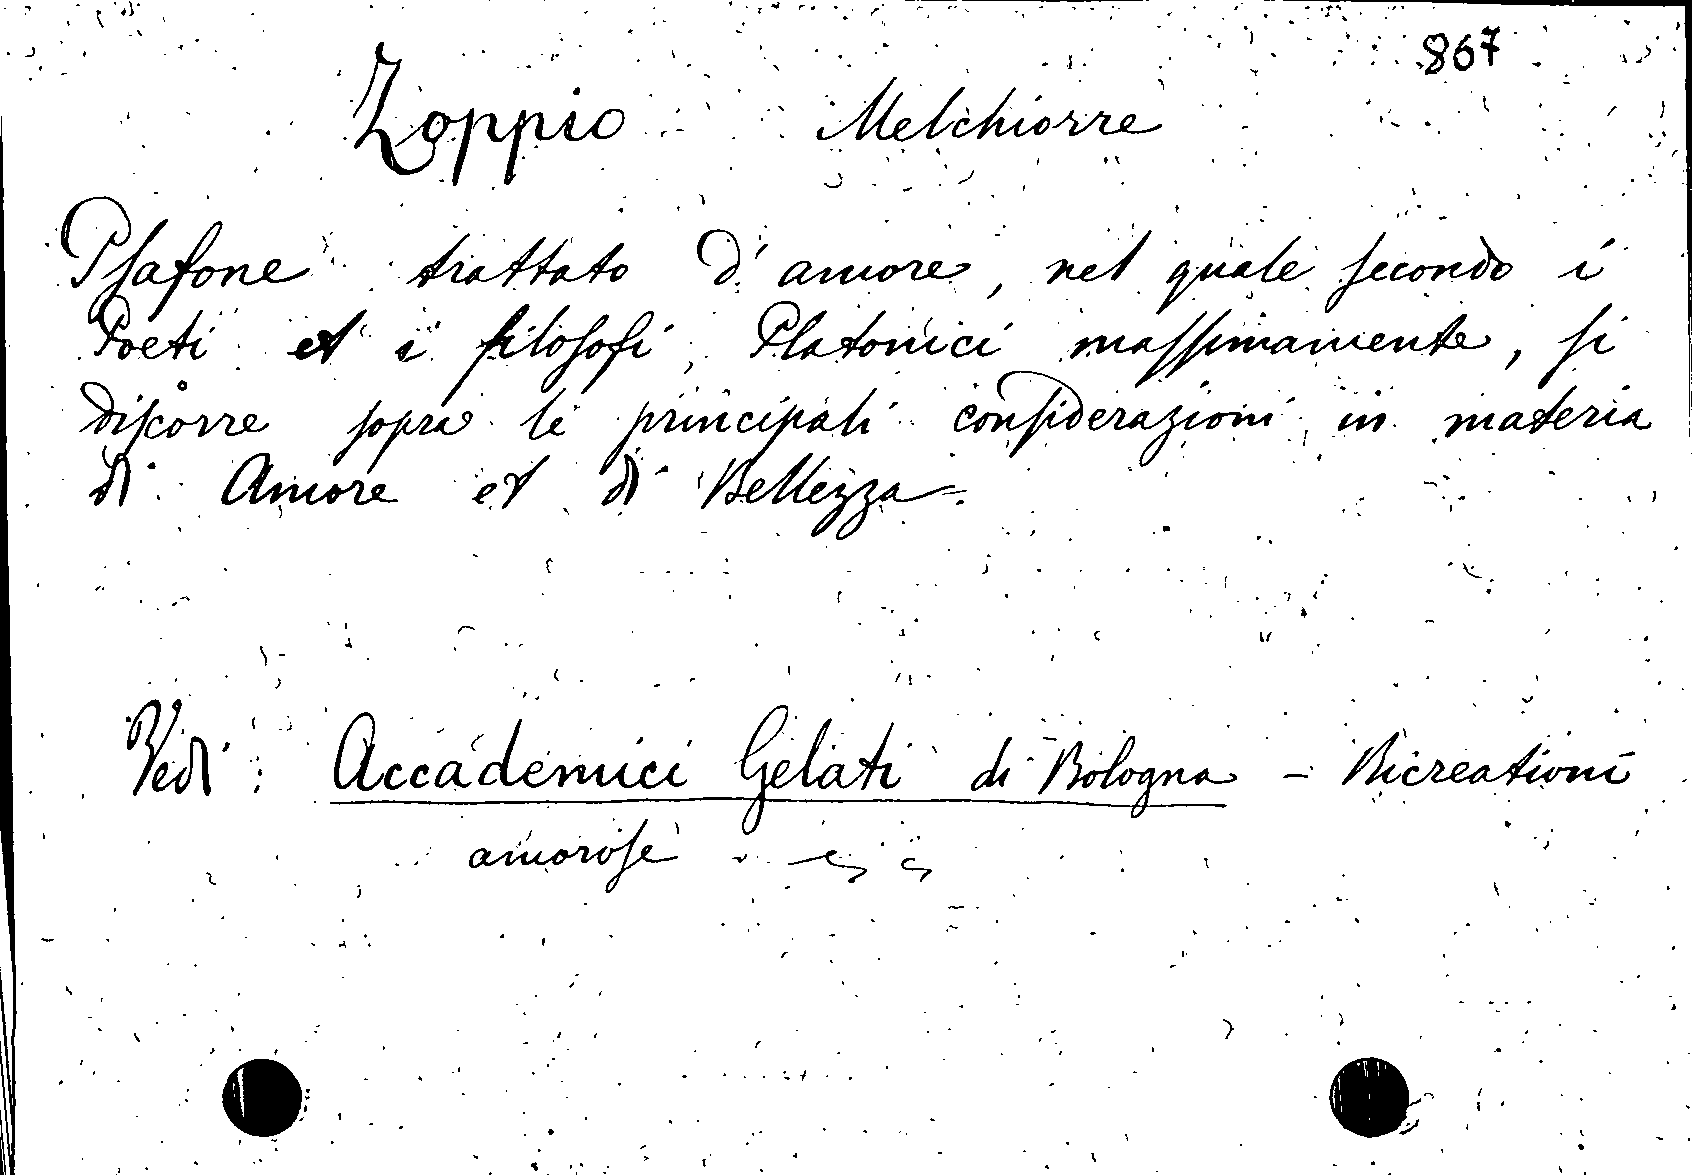 867
Zoppio Melchiorre
Psafone trattato d'amore, nel quale secondo i
Poeti et i filosofi, Platonici massimamente, si
discorre sopra le principali considerazioni in materia
di Amore et di Bellezza.
Vedi: Accademici Gelati di Bologna - Ricreationi
amorose